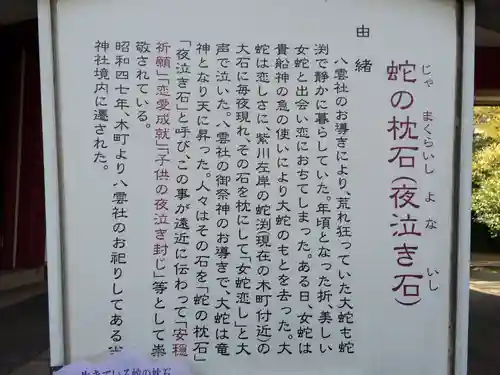 蛇の枕石(夜泣き石)
じゃ まくらいし よ な いし
由緒
八雲社のお導きにより、荒れ狂っていた大蛇も蛇
渕で静かに暮らしていた。年頃となった折、美しい
女蛇と出会い恋におちてしまった。ある日、女蛇は
貴船神の急の使いにより大蛇のもとを去った。大
蛇は恋しさに、紫川左岸の蛇渕(現在の木町付近)の
大石に毎夜現れ、その石を枕にして「女蛇恋し」と大
声で泣いた。八雲社の御祭神のお導きで、大蛇は竜
神となり天に昇った。人々はその石を「蛇の枕石」
「夜泣き石」と呼び、この事が遠近に伝わって「安穏
祈願」「恋愛成就」「子供の夜泣き封じ」等として崇
敬されている。
昭和四七年、木町より八雲社のお祀りしてある当
神社境内に遷された。
生きている蛇の枕石